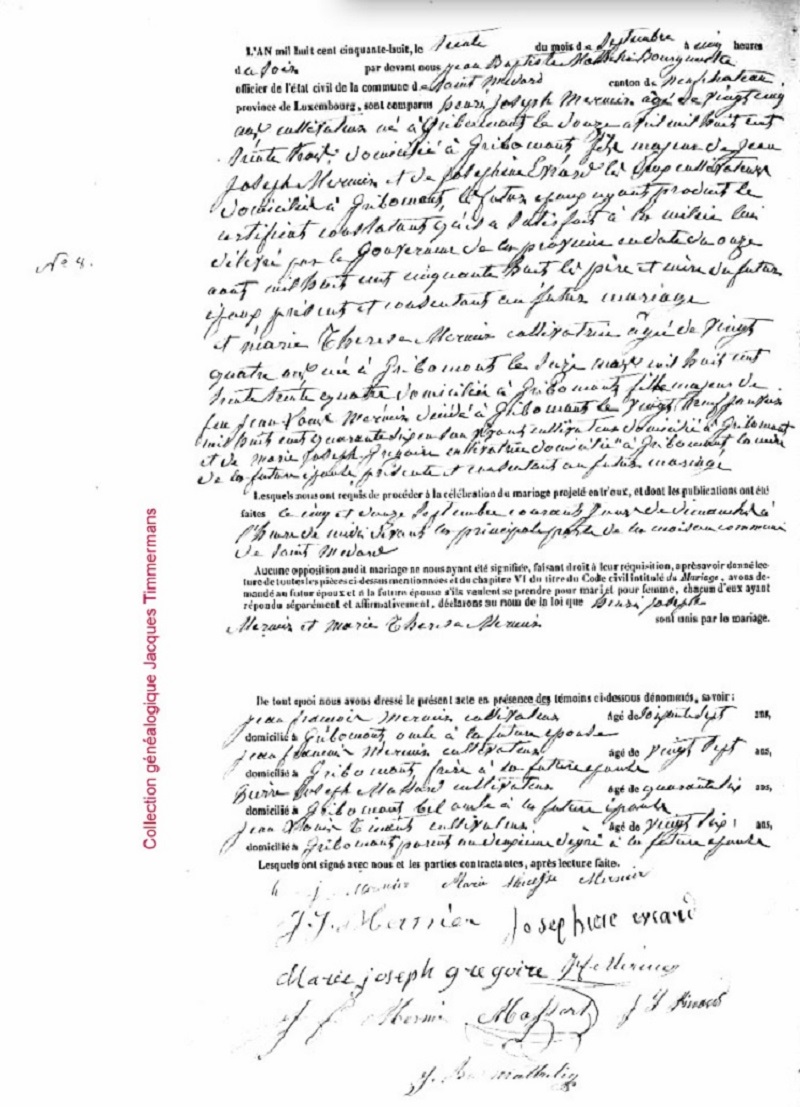 L'AN mil huit cent cinquante-huit, le trente du mois de Septembre à cinq heures
du soir par devant nous Jean Baptiste Bourgmestre
officier de l'état civil de la commune de Saint Medard canton de Neufchateau
province de Luxembourg, sont comparus henri Joseph Mernier agé de vingt cinq
ans cultivateur né à Gribomont le douze avril mil huit cent
trente trois domicilié à Gribomont fils majeur de Jean
Joseph Mernier et de Josephine Evrard les deux cultivateurs
domicilié à Gribomont, le futur epoux ayant produit le
certificat constatant qu'il a satisfait à la milice lui
délivré par le Gouverneur de la province en date du onze
aout mil huit cent cinquante huit le père et mère du futur
époux présent et consentant au futur mariage
N° 8.
et marie Therese Mernier cultivatrice âgé de vingt
quatre ans né à Gribomont le mars mil huit cent
trente quatre domiciliée à Gribomont fille majeur de
feu Jean Louis Mernier décédé à Gribomont le vingt neuf janvier
mil huit cent quarante six en son vivant cultivateur domicilié à Gribomont
et de marie Joseph Gregoire cultivatrice domicilié à Gribomont la mère
de la future épouse présente et consentant au futur mariage
Lesquels nous ont requis de procéder à la célébration du mariage projeté entr'eux, et dont les publications ont été
faites le cinq et douze Septembre courant jours de dimanche à
l'heure de midi devant la principale porte de la maison commune
de Saint Medard
Aucune opposition audit mariage ne nous ayant été signifiée, faisant droit à leur réquisition, après avoir donné lec-
ture de toutes les pièces ci-dessus mentionnées et du chapitre VI du titre du Code civil intitulé du Mariage, avons de-
mandé au futur époux et à la future épouse s'ils veulent se prendre pour mari et pour femme, chacun d'eux ayant
répondu séparément et affirmativement, déclarons au nom de la loi que henri joseph
Mernier et marie Therese Mernier sont unis par le mariage.
De tout quoi nous avons dressé le présent acte en présence des témoins ci-dessous dénommés, savoir :
jean francois Mernier cultivateur âgé de soixante sept ans,
domicilié à Gribomont oncle à la future epouse
jean francois Mernier cultivateur âgé de vingt sept ans,
domicilié à Gribomont frère à la future epouse
pierre Joseph Massard cultivateur âgé de quarante six ans,
domicilié à Gribomont bel oncle à la future épouse
jean Louis cultivateur âgé de vingt six ans,
domicilié à Gribomont parent au deuxième degré à la future epouse
Lesquels ont signé avec nous et les parties contractantes, après lecture faite.
h j Mernier Marie therese Mernier
J. J. Mernier Josephine evrard
Marie joseph gregoire
J F Mernier Massart
Collection généalogique Jacques Timmermans